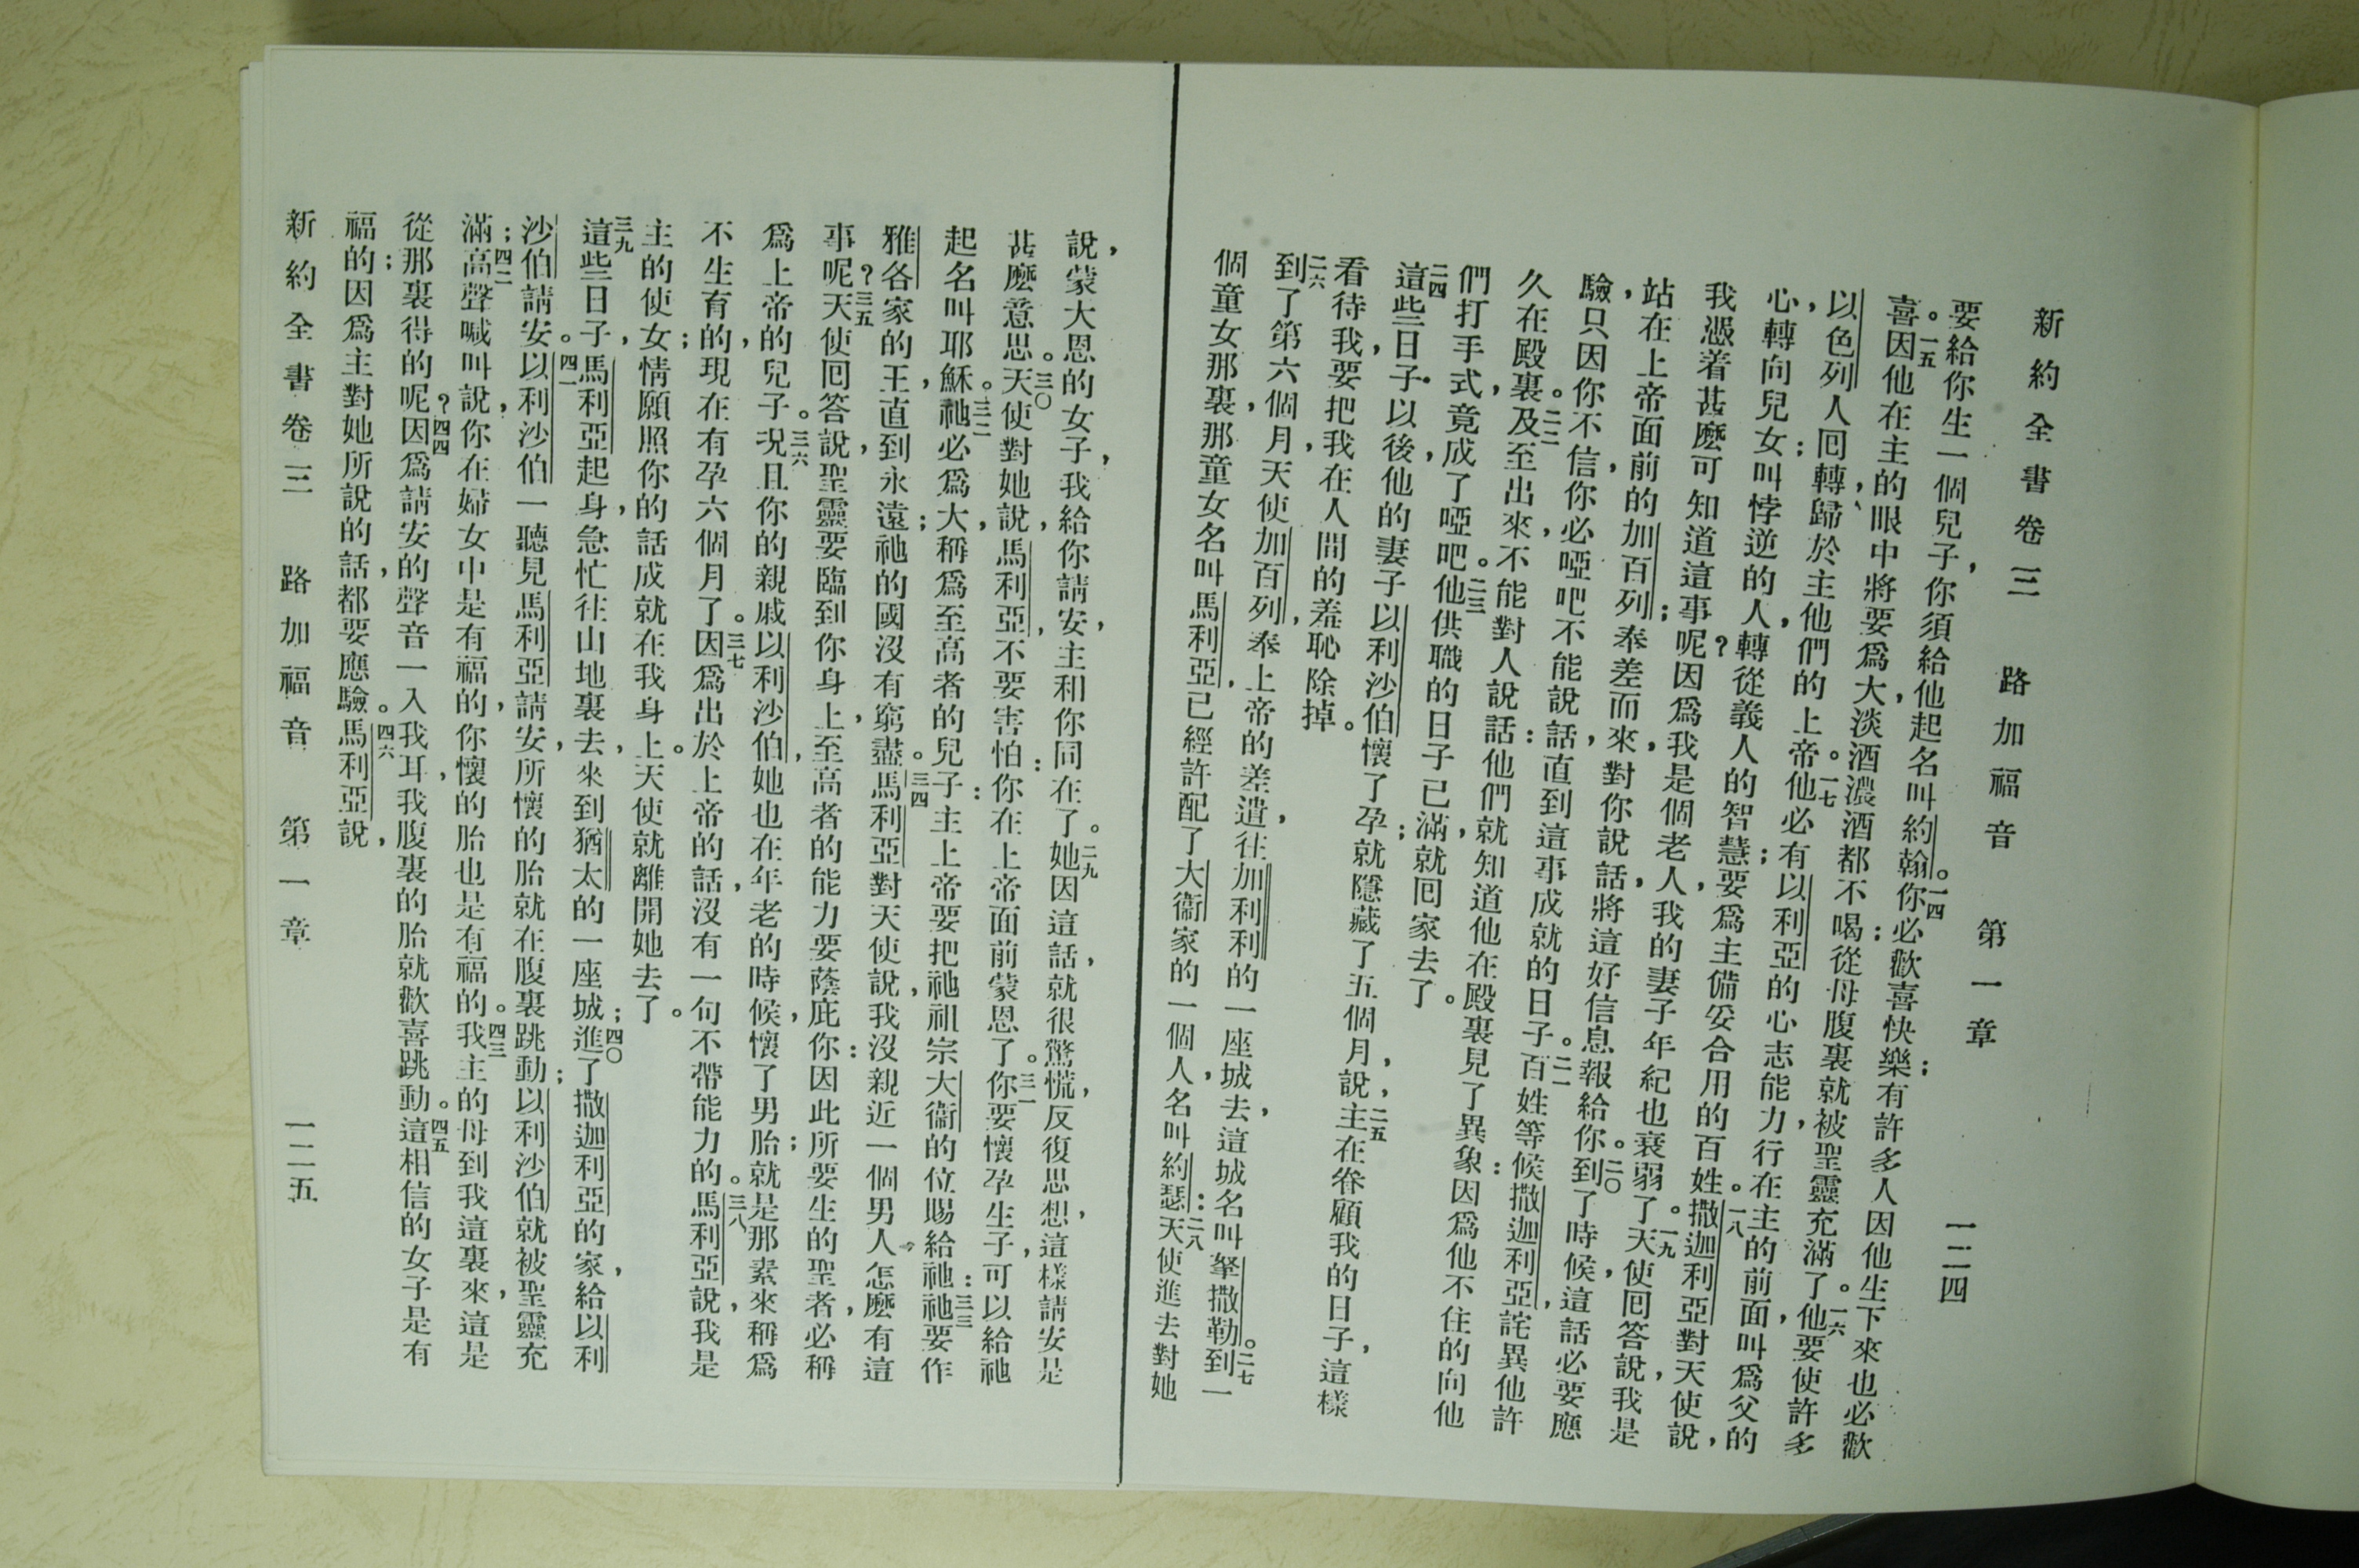 新約全書卷三　路加福音　第一章　一二四
要給你生一個兒子，你須給他起名叫約翰。一四你必歡喜快樂；有許多人因他生下來也必歡
喜。一五因他在主的眼中將要爲大，淡酒濃酒都不喝；從母腹裏就被聖靈充滿了。一六他要使許多
以色列人回轉，歸於主他們的上帝。一七他必有以利亞的心志能力，行在主的前面，叫爲父的
心，轉向兒女；叫悖逆的人，轉從義人的智慧；要爲主備妥合用的百姓。一八撒迦利亞對天使說，
我憑着甚麼可知道這事呢？因爲我是個老人，我的妻子年紀也衰弱了。一九天使回答說，我是
站在上帝面前的加百列；奉差而來，對你說話，將這好信息報給你。二〇到了時候，這話必要應
驗，只因你不信，你必啞吧不能說話，直到這事成就的日子。二一百姓等候撒迦利亞，詫異他許
久在殿裏。二二及至出來，不能對人說話：他們就知道他在殿裏見了異象：因爲他不住的向他
們打手式，竟成了啞吧。二三他供職的日子已滿，就回家去了。
二四這些日子以後，他的妻子以利沙伯懷了孕；就隱藏了五個月，說，二五主在眷顧我的日子，這樣
看待我，要把我在人間的羞恥除掉。
二六到了第六個月，天使加百列，奉上帝的差遣，往加利利的一座城去，這城名叫拏撒勒。二七到一
個童女那裏，那童女名叫馬利亞，已經許配了大衞家的一個人，名叫約瑟：二八天使進去對她
說，蒙大恩的女子，我給你請安，主和你同在了。二九她因這話，就很驚慌，反復思想，這樣請安是
甚麼意思。三〇天使對她說，馬利亞，不要害怕：你在上帝面前蒙恩了。三一你要懷孕生子，可以給祂
起名叫耶穌。三二祂必爲大，稱爲至高者的兒子：主上帝要把祂祖宗大衞的位賜給祂：三三祂要作
雅各家的王，直到永遠；祂的國沒有窮盡。三四馬利亞對天使說，我沒親近一個男人，怎麼有這
事呢？三五天使回答說，聖靈要臨到你身上，至高者的能力要蔭庇你：因此所要生的聖者，必稱
爲上帝的兒子。三六況且你的親戚以利沙伯，她也在年老的時候，懷了男胎；就是那素來稱爲
不生育的，現在有孕六個月了。三七因爲出於上帝的話，沒有一句不帶能力的。三八馬利亞說，我是
主的使女；情願照你的話成就在我身上。天使就離開她去了。
三九這些日子，馬利亞起身，急忙往山地裏去，來到猶太的一座城；四〇進了撒迦利亞的家，給以利
沙伯請安。四一以利沙伯一聽見馬利亞請安，所懷的胎就在腹裏跳動；以利沙伯就被聖靈充
滿；四二高聲喊叫說，你在婦女中是有福的，你懷的胎也是有福的。四三我主的母到我這裏來，這是
從那裏得的呢？四四因爲請安的聲音一入我耳，我腹裏的胎就歡喜跳動。四五這相信的女子是有
福的；因爲主對她所說的話，都要應驗。四六馬利亞說，
新約全書卷三　路加福音　第一章　一二五